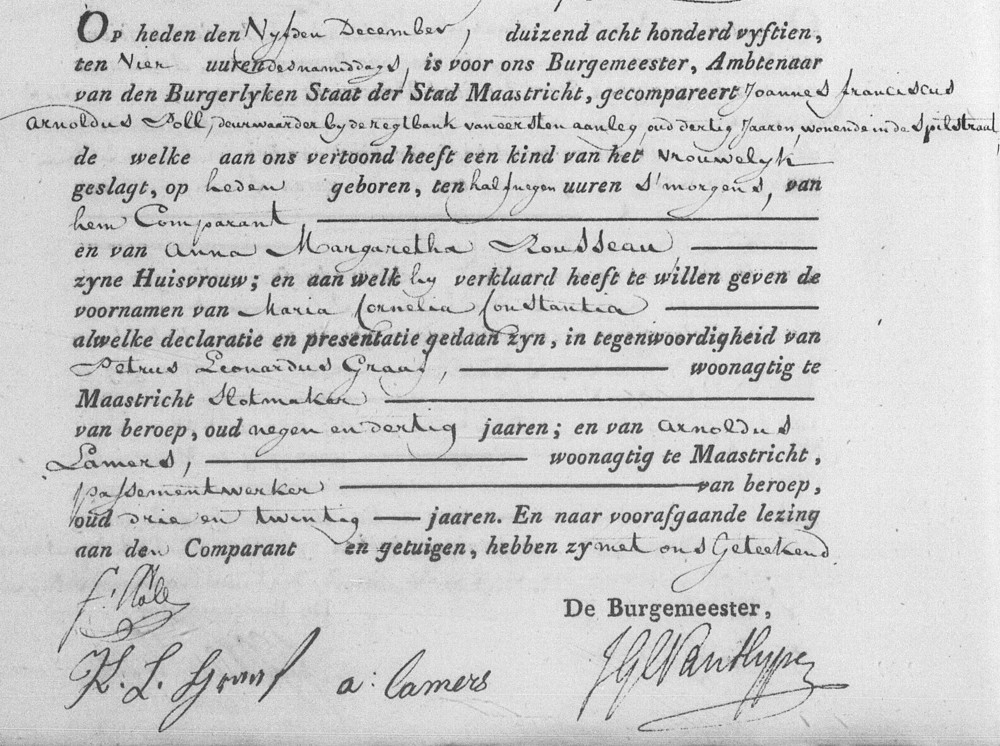 Op heden den Vyfden December, duizend acht honderd vyftien,
ten Vier uuren des namiddags, is voor ons Burgemeester, Ambtenaar
van den Burgerlyken Staat der Stad Maastricht, gecompareert Joannes franciscus
Arnoldus Poll, deurwaarder by de regtbank van eersten aanleg, oud dertig Jaaren, wonende in de Spilstraat,
de welke aan ons vertoond heeft een kind van het vrouwelyk
geslagt, op heden geboren, ten half negen uuren s'morgens, van
hem Comparant
en van Anna Margaretha Rousseau,
zyne Huisvrouw; en aan welk hy verklaard heeft te willen geven de
voornamen van Maria Cornelia Constantia
alwelke declaratie en presentatie gedaan zyn, in tegenwoordigheid van
Petrus Leonardus Graaf, woonagtig te
Maastricht Slotmaker
van beroep, oud negen en dertig jaaren; en van Arnoldus
Lamers, woonagtig te Maastricht,
passementwerker van beroep,
oud drie en twintig jaaren. En naar voorafgaande lezing
aan den Comparant en getuigen, hebben zy met ons Geteekend.
De Burgemeester,
P. L. Graaf a: Lamers